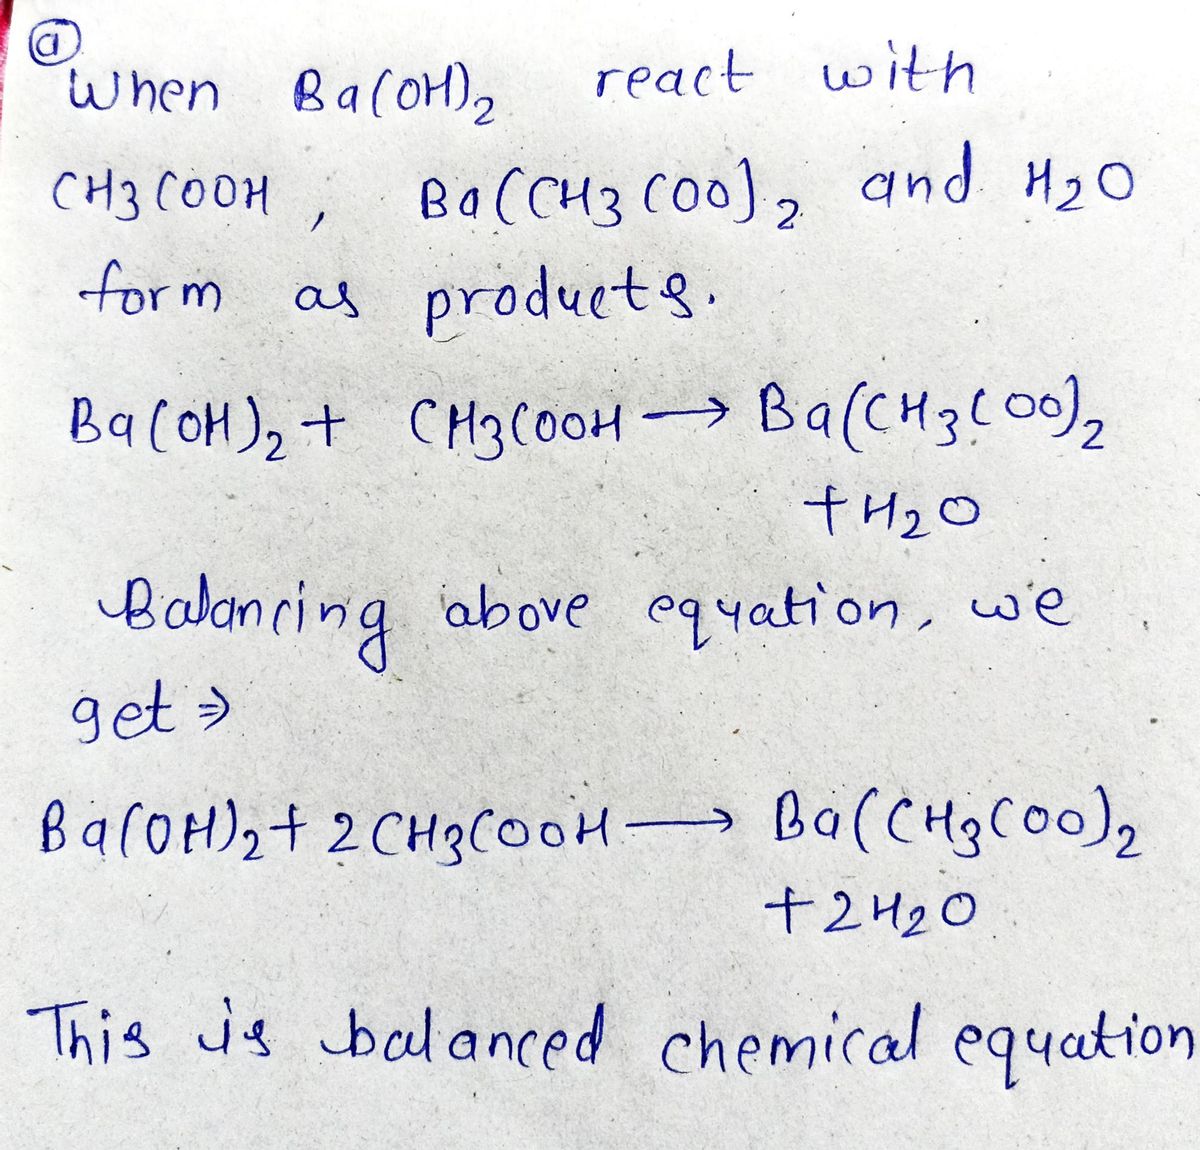 ⓐ
When Ba(OH)₂ react with
CH3COOH, Ba(CH3COO)₂ and H₂O
form as products.
Ba(OH)₂ + CH3COOH → Ba(CH3COO)₂
+ H₂O
Balancing above equation, we
get ⇒
Ba(OH)₂ + 2CH3COOH → Ba(CH3COO)₂
+ 2H₂O
This is balanced chemical equation